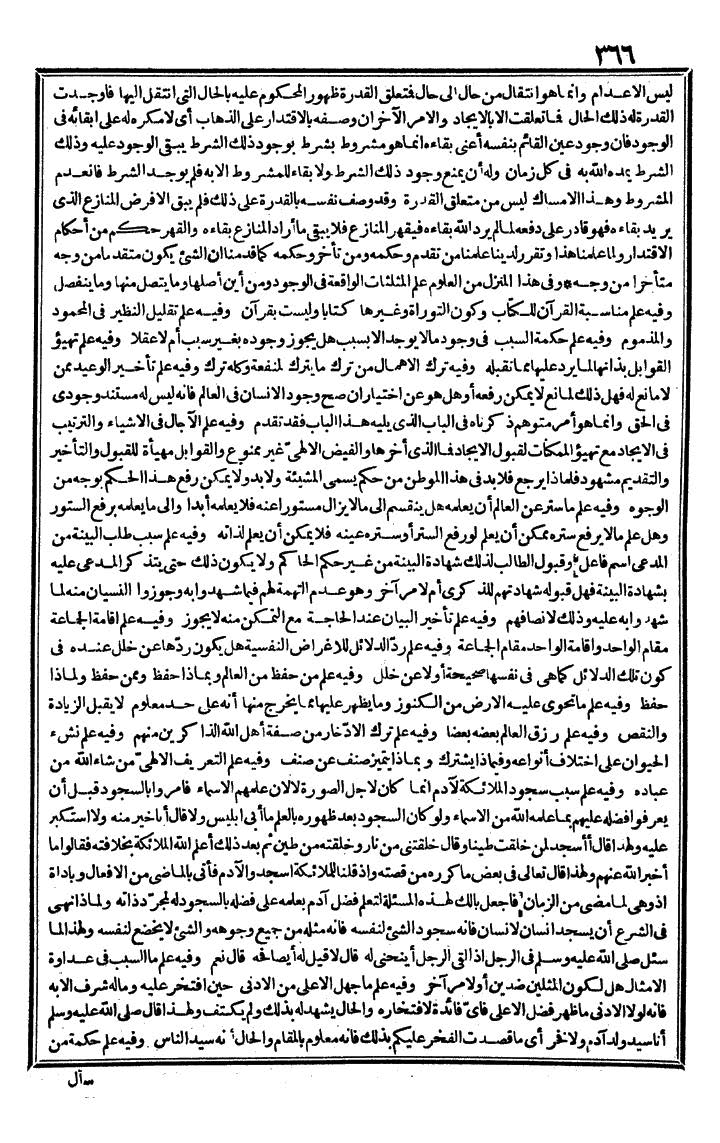 ٣٦٦
ليس الاعدام وانما هو انتقال من حال الى حال فتعلق القدرة ظهور المحكوم عليه بالحال التي انتقل اليها فاوجدت
القدرة له ذلك الحال فما تعلقت الا بالايجاد والامر الآخر ان وصفه بالاقتدار على الذهاب أى لا مكره له على ابقائه فى
الوجود فان وجود عين القائم بنفسه أعنى بقاءه انما هو مشروط بشرط بوجود ذلك الشرط يبقى الوجود عليه وذلك
الشرط يمده الله به فى كل زمان وله أن يمنع وجود ذلك الشرط ولا بقاء للمشروط الا به فلم يوجد الشرط فانعدم
المشروط وهذا الامساك ليس من متعلق القدرة وقد وصف نفسه بالقدرة على ذلك فلم يبق الا فرض المنازع الذى
يريد بقاءه فهو قادر على دفعه لما لم يرد الله بقاءه فيقهر المنازع فلا يبقى ما أراد المنازع بقاءه والقهر حكم من أحكام
الاقتدار ولما علمنا هذا وتقرر لدينا علمنا من تقدم وحكمه ومن تأخر وحكمه كما قدمنا ان الشئ يكون متقدما من وجه
متأخرا من وجه * وفى هذا المنزل من العلوم علم المثلثات الواقعة فى الوجود ومن أين أصلها وما يتصل منها وما ينفصل
وفيه علم مناسبة القرآن للكتاب وكون التوراة وغيرها كتابا وليست بقرآن وفيه علم تقليل النظير فى المحمود
والمذموم وفيه علم حكمة السبب فى وجود ما لا يوجد الا بسبب هل يجوز وجوده بغير سبب أم لا عقلا وفيه علم تهيؤ
القوابل بذاتها لما يرد عليها مما تقبله وفيه ترك الاهمال من ترك ما يترك لمنفعة وكله ترك وفيه علم تأخير الوعيد ممن
لا مانع له فهل ذلك لمانع لا يمكن رفعه أو هل هو عن اختيار ان صح وجود الانسان فى العالم فانه ليس له مستند وجودى
فى الحق وانما هو أمر متوهم ذكرناه فى الباب الذى يليه هذا الباب فقد تقدم وفيه علم الآجال فى الاشياء والترتيب
فى الايجاد مع تهيؤ الممكنات لقبول الايجاد فما الذى أخرها والفيض الالهىّ غير ممنوع والقوابل مهيأة للقبول والتأخير
والتقديم مشهود فلماذا يرجع فلا بد فى هذا الموطن من حكم يسمى المشيئة ولا بد ولا يمكن رفع هذا الحكم بوجه من
الوجوه وفيه علم ما ستر عن العالم أن يعلمه هل ينقسم الى ما لا يزال مستورا عنه فلا يعلمه أبدا والى ما يعلمه برفع الستور
وهل علم ما لا يرفع ستره ممكن أن يعلم لو رفع الستر أو ستره عينه فلا يمكن أن يعلم لذاته وفيه علم سبب طلب البينة من
المدعى اسم فاعل وقبول الطالب لذلك شهادة البينة من غير حكم الحاكم ولا يكون ذلك حتى يتذكر المدعى عليه
بشهادة البينة فهل قبوله شهادتهم للذكرى أم لامر آخر وهو عدم التهمة لهم فيما شهدوا به وجوزوا النسيان منه لما
شهدوا به عليه وذلك لانصافهم وفيه علم تأخير البيان عند الحاجة مع التمكن منه لا يجوز وفيه علم اقامة الجماعة
مقام الواحد واقامة الواحد مقام الجماعة وفيه علم ردّ الدلائل للاغراض النفسية هل يكون ردّها عن خلل عنده فى
كون تلك الدلائل كما هى فى نفسها صحيحة أو لا عن خلل وفيه علم من حفظ من العالم وبماذا حفظ وممن حفظ ولماذا
حفظ وفيه علم ما تحوى عليه الارض من الكنوز وما يظهر عليها مما يخرج منها أنه على حد معلوم لا يقبل الزيادة
والنقص وفيه علم رزق العالم بعضه بعضا وفيه علم ترك الادّخار من صفة أهل الله الذاكرين منهم وفيه علم نشء
الحيوان على اختلاف أنواعه وفيما ذا يشترك وبماذا يتميز صنف عن صنف وفيه علم التعريف الالهىّ من شاء الله من
عباده وفيه علم سبب سجود الملائكة لآدم انما كان لاجل الصورة لا لان علمهم الاسماء فامروا بالسجود قبل أن
يعرفوا فضله عليهم بما علمه الله من الاسماء ولو كان السجود بعد ظهوره بالعلم ما أبى ابليس ولا قال أنا خير منه ولا استكبر
عليه ولهذا قال أأسجد لمن خلقت طينا وقال خلقتنى من نار وخلقته من طين ثم بعد ذلك أعلم الله الملائكة بخلافته فقالوا ما
أخبر الله عنهم ولهذا قال تعالى فى بعض ما كرره من قصته واذ قلنا للملائكة اسجدوا لآدم فأتى بالماضى من الافعال وباداة
اذ وهى لما مضى من الزمان فاجعل بالك لهذه المسئلة لتعلم فضل آدم بعلمه على فضله بالسجود له لمجرّد ذاته ولماذا نهى
فى الشرع أن يسجد انسان لانسان فانه سجود الشئ لنفسه فانه مثله من جميع وجوهه والشئ لا يخضع لنفسه ولهذا لما
سئل صلى الله عليه وسلم فى الرجل اذا لقى الرجل أينحنى له قال لا قيل له أيصافحه قال نعم وفيه علم ما السبب فى عداوة
الامثال هل لكون المثلين ضدين أو لامر آخر وفيه علم ما جهل الاعلى من الادنى حين افتخر عليه وما له شرف الا به
فانه لولا الادنى ما ظهر فضل الاعلى فاىّ فائدة لافتخاره والحال يشهد له بذلك ولم يكتف ولهذا قال صلى الله عليه وسلم
أنا سيد ولد آدم ولا فخر أى ما قصدت الفخر عليكم بذلك فانه معلوم بالمقام والحال أنه سيد الناس وفيه علم حكمة من
سأل